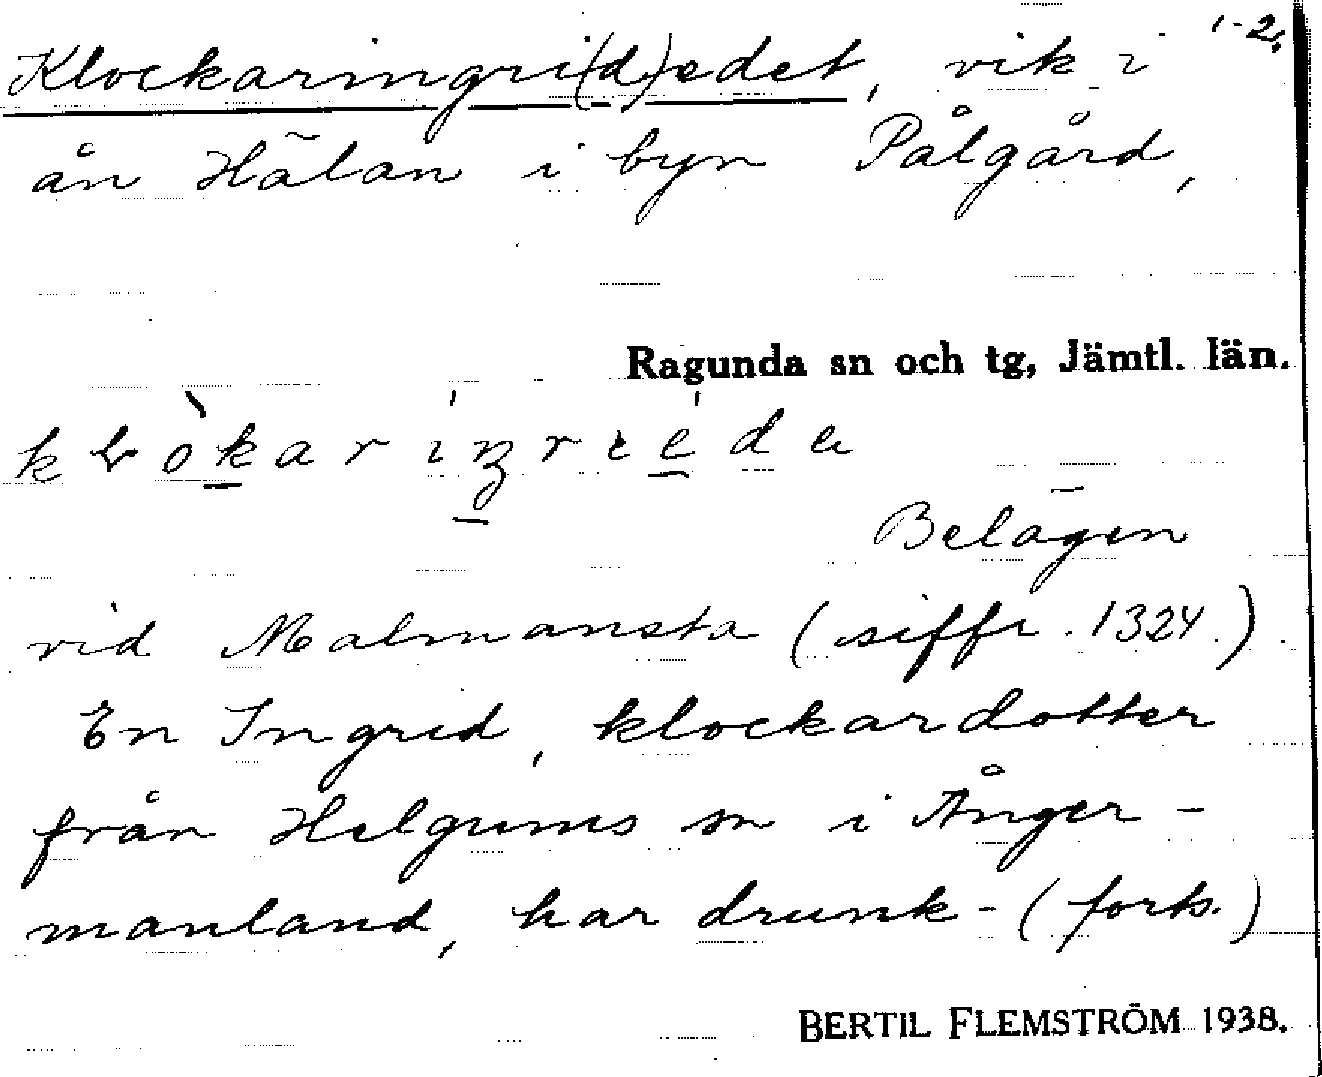 1-2.
Klockaringri(d)edet, vik i
ån Hälan i byn Pålgård,
Ragunda sn och tg, Jämtl. län.
Belägen
vid Malmansta (siffr. 1324.)
En Ingrid, klockardotter
från Helgums sn i Ånger-
manland, har drunk- (forts.)
BERTIL FLEMSTRÖM 1938.